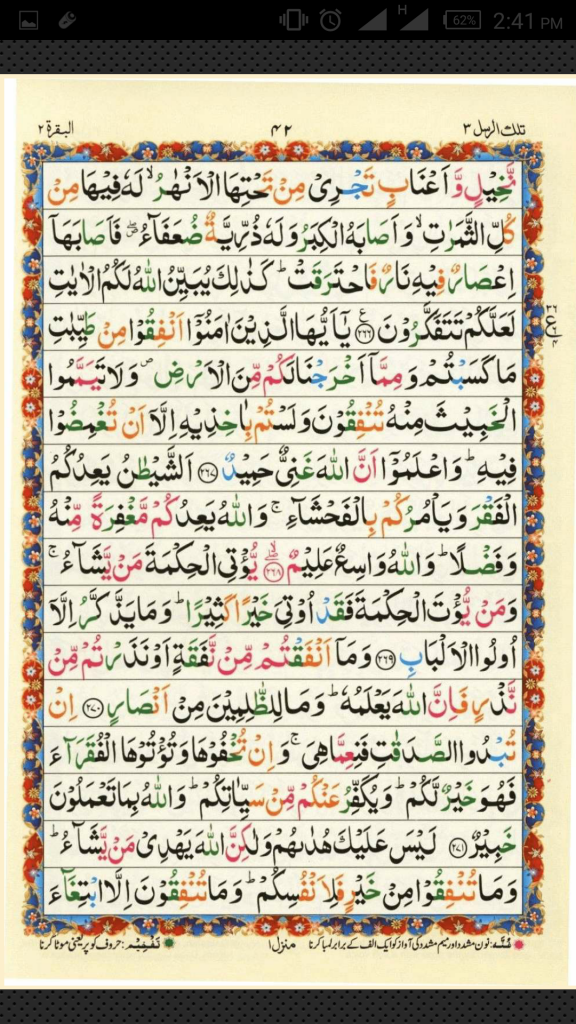 H 62% 2:41 PM
تلك الرسل ٣ ۴۲ البقرة ٢
نَّخِيْلٍ وَّاَعْنَابٍ تَجْرِىْ مِنْ تَحْتِهَا الْاَنْهٰرُ ۙ لَهٗ فِيْهَا مِنْ
كُلِّ الثَّمَرٰتِ ۙ وَاَصَابَهُ الْكِبَرُ وَلَهٗ ذُرِّيَّةٌ ضُعَفَآءُ ۖ فَاَصَابَهَاۤ
اِعْصَارٌ فِيْهِ نَارٌ فَاحْتَرَقَتْ ؕ كَذٰلِكَ يُبَيِّنُ اللّٰهُ لَكُمُ الْاٰيٰتِ
لَعَلَّكُمْ تَتَفَكَّرُوْنَ ﴿۲۶۶﴾ يٰۤاَيُّهَا الَّذِيْنَ اٰمَنُوْۤا اَنْفِقُوْا مِنْ طَيِّبٰتِ
مَا كَسَبْتُمْ وَمِمَّاۤ اَخْرَجْنَا لَكُمْ مِّنَ الْاَرْضِ ۪ وَلَا تَيَمَّمُوا
الْخَبِيْثَ مِنْهُ تُنْفِقُوْنَ وَلَسْتُمْ بِاٰخِذِيْهِ اِلَّاۤ اَنْ تُغْمِضُوْا
فِيْهِ ؕ وَاعْلَمُوْۤا اَنَّ اللّٰهَ غَنِىٌّ حَمِيْدٌ ﴿۲۶۷﴾ اَلشَّيْطٰنُ يَعِدُكُمُ
الْفَقْرَ وَيَاْمُرُكُمْ بِالْفَحْشَآءِ ۚ وَاللّٰهُ يَعِدُكُمْ مَّغْفِرَةً مِّنْهُ
وَفَضْلًا ؕ وَاللّٰهُ وَاسِعٌ عَلِيْمٌ ﴿۲۶۸﴾ يُّؤْتِى الْحِكْمَةَ مَنْ يَّشَآءُ ۚ
وَمَنْ يُّؤْتَ الْحِكْمَةَ فَقَدْ اُوْتِىَ خَيْرًا كَثِيْرًا ؕ وَمَا يَذَّكَّرُ اِلَّاۤ
اُولُوا الْاَلْبَابِ ﴿۲۶۹﴾ وَمَاۤ اَنْفَقْتُمْ مِّنْ نَّفَقَةٍ اَوْ نَذَرْتُمْ مِّنْ
نَّذْرٍ فَاِنَّ اللّٰهَ يَعْلَمُهٗ ؕ وَمَا لِلظّٰلِمِيْنَ مِنْ اَنْصَارٍ ﴿۲۷۰﴾ اِنْ
تُبْدُوا الصَّدَقٰتِ فَنِعِمَّا هِىَ ۚ وَاِنْ تُخْفُوْهَا وَتُؤْتُوْهَا الْفُقَرَآءَ
فَهُوَ خَيْرٌ لَّكُمْ ؕ وَيُكَفِّرُ عَنْكُمْ مِّنْ سَيِّاٰتِكُمْ ؕ وَاللّٰهُ بِمَا تَعْمَلُوْنَ
خَبِيْرٌ ﴿۲۷۱﴾ لَيْسَ عَلَيْكَ هُدٰىهُمْ وَلٰكِنَّ اللّٰهَ يَهْدِىْ مَنْ يَّشَآءُ ؕ
وَمَا تُنْفِقُوْا مِنْ خَيْرٍ فَلِاَنْفُسِكُمْ ؕ وَمَا تُنْفِقُوْنَ اِلَّا ابْتِغَآءَ
غُنّہ: نون مشدد اور میم مشدد کی آواز کو ایک الف کے برابر لمبا کرنا منزل ١ تَفْخِیْم: حروف کو پُر یعنی موٹا کرنا